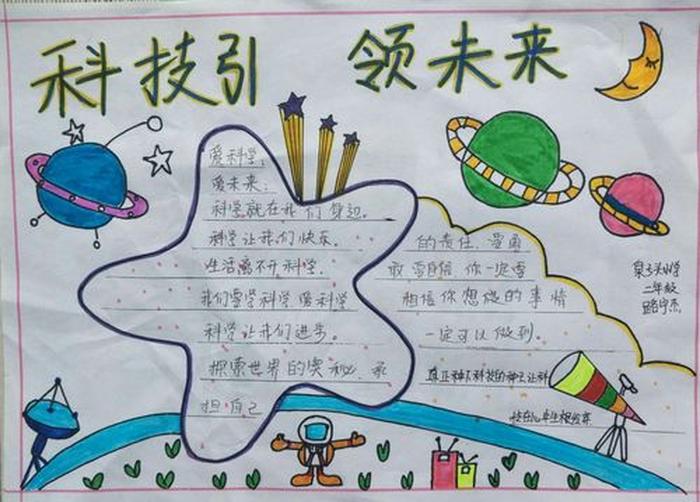 科技引领未来
爱科学；
爱未来；
科学就在我们身边。
科学让我们快乐。
生活离不开科学。
我们要学科学爱科学
科学让我们进步。
探索世界的奥秘，承
担自己
的责任，要勇
敢 自信 你一定要
相信你想做的事情
一定可以做到。
真正种下科技的种子让科
技在心中生根发芽
泉子头小学
二年级